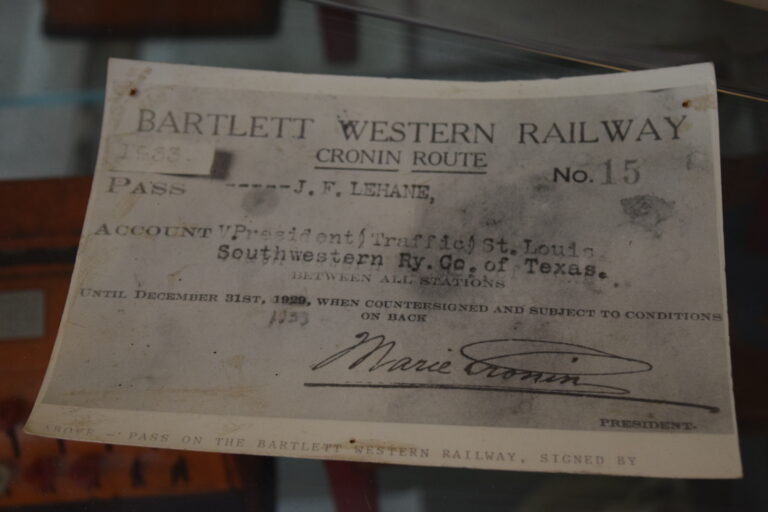 BARTLETT WESTERN RAILWAY
CRONIN ROUTE
1933
No. 15
PASS -----J. F. LEHANE,
ACCOUNT V.President(Traffic)St.Louis
Southwestern Ry.Co.of Texas.
BETWEEN ALL STATIONS
UNTIL DECEMBER 31ST, 1929, WHEN COUNTERSIGNED AND SUBJECT TO CONDITIONS
1933 ON BACK
Marie Cronin
PRESIDENT.
ABOVE - PASS ON THE BARTLETT WESTERN RAILWAY, SIGNED BY